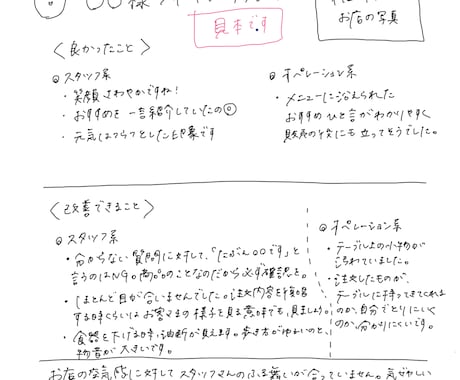 〇〇様
見本です
お店の写真
〈良かったこと〉
◎スタッフ系
・笑顔さわやかですね!
・おすすめを一言紹介していたの◎
・元気はつらつとした印象です
◎オペレーション系
・メニューに添えられた
おすすめひと言がわかりやすく
販売の役にも立ってそうでした。
〈改善できること〉
◎スタッフ系
・分からない質問に対して、「たぶん〇〇です」と
言うのはNG。商品のことなのだから必ず確認を。
・ほとんど目が合いませんでした。注文内容を復唱
する時くらいはお客さまの様子を見る意味でも、見ましょう。
・食器を下げる時、油断が見えます。歩き方がゆるいのと、
物音が大きいです。
◎オペレーション系
・テーブル上の小物が
汚れていました。
・注文したものが、
テーブルに持ってきてくれる
のか、自分でとりにいく
のか、分かりにくいです。
お店の空気感に対してスタッフさんのふる舞いが合っていません。気ぜわしい